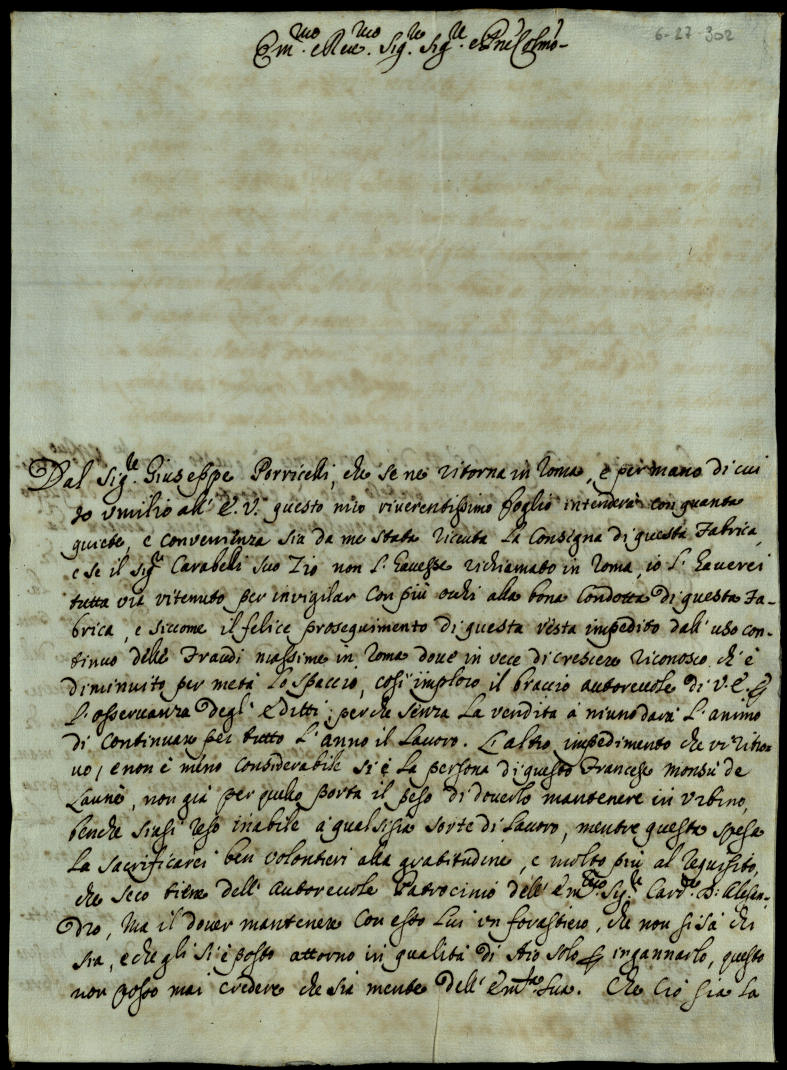 6-27-302
Em.mo e Rev.mo Sig.re Sig.re e Pne Colmo
Dal Sig.re Giuseppe Porricelli, che se ne ritorna in Roma, e per mano di cui
Io umilio all' E. V. questo mio riverentissimo foglio intenderà con quanta
quiete, e convenienza sia da me stata ricevuta la Consigna di questa Fabrica,
e se il Sig.r Carabelli suo Zio non l' havesse richiamato in Roma, io l' haverei
tutta via ritenuto per invigilar con più occhi alla bona Condotta di questa Fa-
brica, e siccome il felice proseguimento di questa resta impedito dall' uso con-
tinuo delle Fraudi massime in Roma dove in vece di crescere riconosco ch' è
diminuito per metà lo spaccio, così imploro il braccio autorevole di V. E.
l' osservanza degl' Editti, perche senza la vendita à niuno darà l' animo
di continuare per tutto l' anno il Lavoro. L' altro impedimento che vi ritro-
vo, e non è meno considerabile si è la persona di questo Francese monsù de
Launè, non già per quello porta il peso di doverlo mantenere in Urbino,
benche siasi reso inabile à qualsisia sorte di Lavoro, mentre questa spesa
la sacrificarei ben volontieri alla gratitudine, e molto più al requisito,
che seco tiene dell' autorevole Patrocinio dell' Em.mo Sig.re Card.le D: Alesan-
dro, ma il dover mantenere con esso lui un forastiero, che non si sà chi
sia, e che gli si è posto attorno in qualità di Aio solo ingannarlo, questo
non posso mai credere che sia mente dell' Em.za Sua. Che ciò sia la